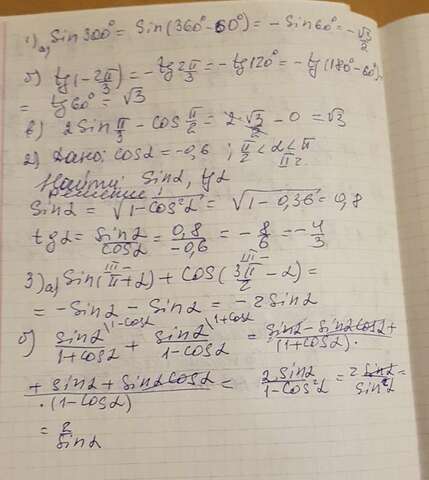 1) а) Sin300° = Sin(360°-60°) = - Sin60° = -√3/2
б) tg(-2π/3) = -tg 2π/3 = -tg120° = -tg(180°-60°)
= tg60° = √3
в) 2Sin π/3 - cos π/2 = 2·√3/2 - 0 = √3
2) Дано: cosα = -0,6 ; π/2 < α < π
II г.
Найти: Sinα, tgα
Решение:
Sinα = √1-cos²α = √1-0,36 = 0,8
tgα = sinα/cosα = 0,8/-0,6 = -8/6 = -4/3
3) а) Sin(π+α) + cos(3π/2 - α) =
= -Sinα - Sinα = -2Sinα
б) sinα\1-cosα/1+cosα + sinα\1+cosα/1-cosα = sinα - sinαcosα +/(1+cosα)·
+ sinα + sinαcosα/·(1-cosα) = 2sinα/1-cos²α = 2 sinα/sin²α =
= 2/sinα